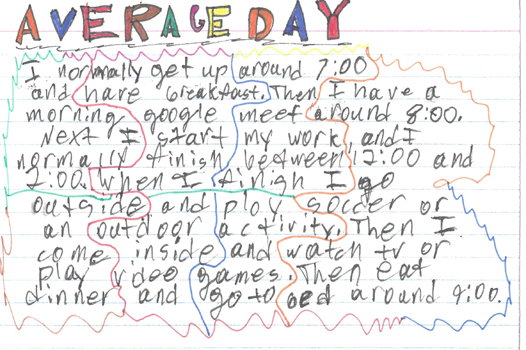 AVERAGE DAY
I normally get up around 7:00
and have breakfast. Then I have a
morning google meet around 8:00.
Next I start my work, and I
normally finish between 12:00 and
2:00. When I finish I go
outside and play soccer or
an outdoor activity. Then I
come inside and watch tv or
play video games. Then eat
dinner and go to bed around 9:00.